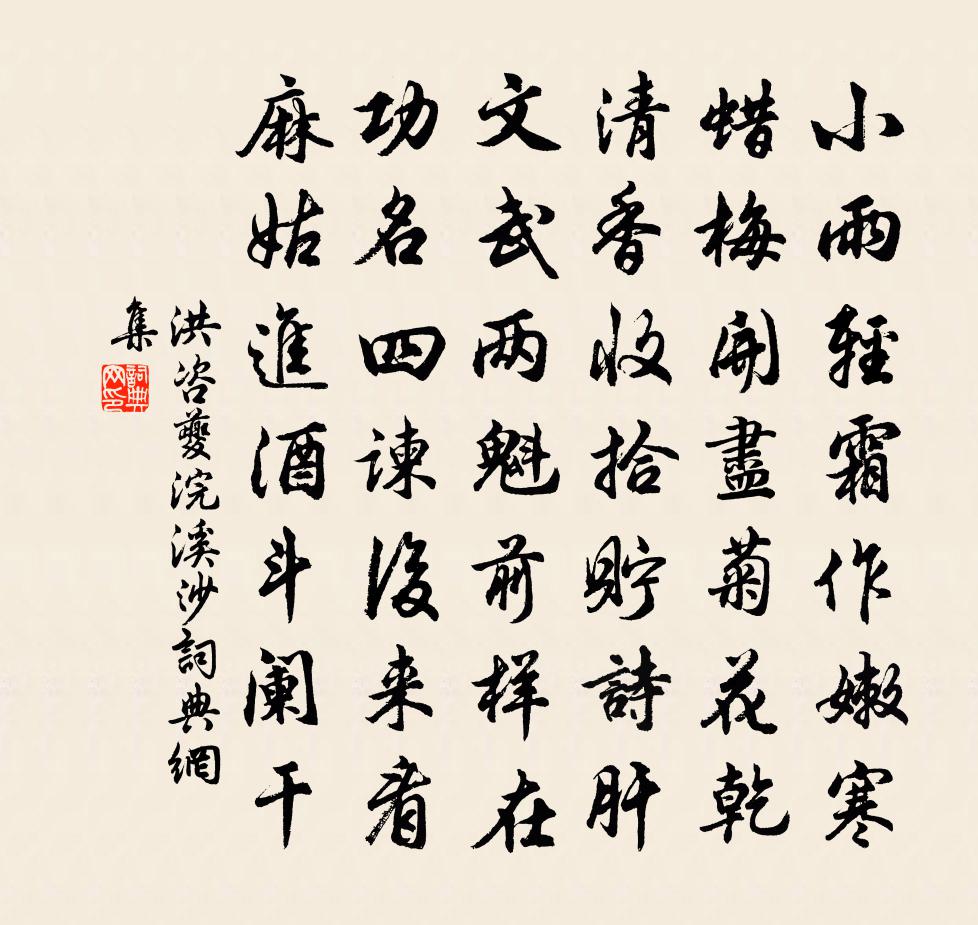 小雨輕霜作嫩寒
蜡梅開盡菊花乾
清香收拾貯詩肝
文武两魁前样在
功名四諫後来看
麻姑進酒斗阑干
洪咨夔浣溪沙詞典網
集
詞典网印